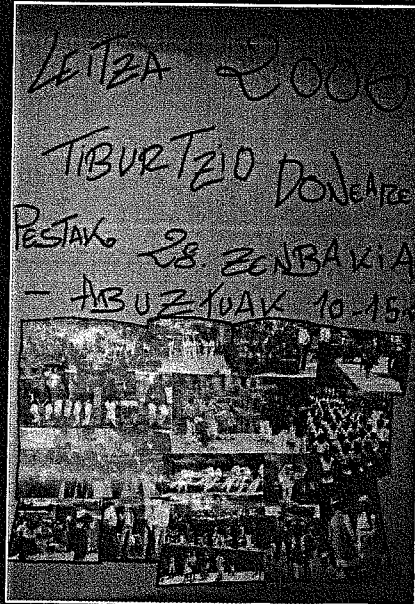 LEITZA 2000
TIBURTZIO DONEARE
PESTAK. 28. ZENBAKIA
- ABUZTUAK 10-15